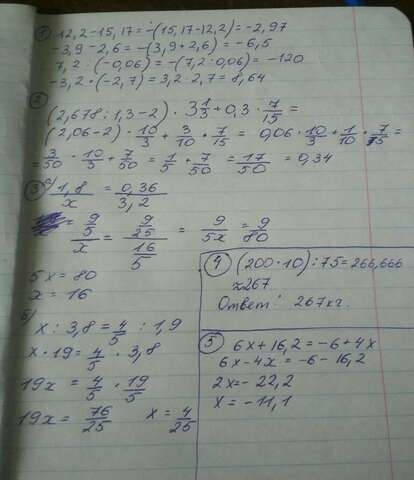 ① 12,2-15,17=-(15,17-12,2)=-2,97
-3,9-2,6=-(3,9+2,6)=-6,5
7,2:(-0,06)=-(7,2:0,06)=-120
-3,2·(-2,7)=3,2·2,7=8,64
②
(2,678:1,3-2)·3 1/3+0,3·7/15=
(2,06-2)·10/3+3/10·7/15=0,06·10/3+1/10·7/5=
=3/50·10/3+7/50=1/5+7/50=17/50=0,34
③ а) 1,8/x=0,36/3,2
=(9/5)/x=(9/25)/(16/5)=9/5x=9/80
5x=80
x=16
б)
x:3,8=4/5:1,9
x·19=4/5·3,8
19x=4/5·19/5
19x=76/25 x=4/25
④ (200·10):75=266,666
≈267
Ответ: 267кг.
⑤ 6x+16,2=-6+4x
6x-4x=-6-16,2
2x=-22,2
x=-11,1